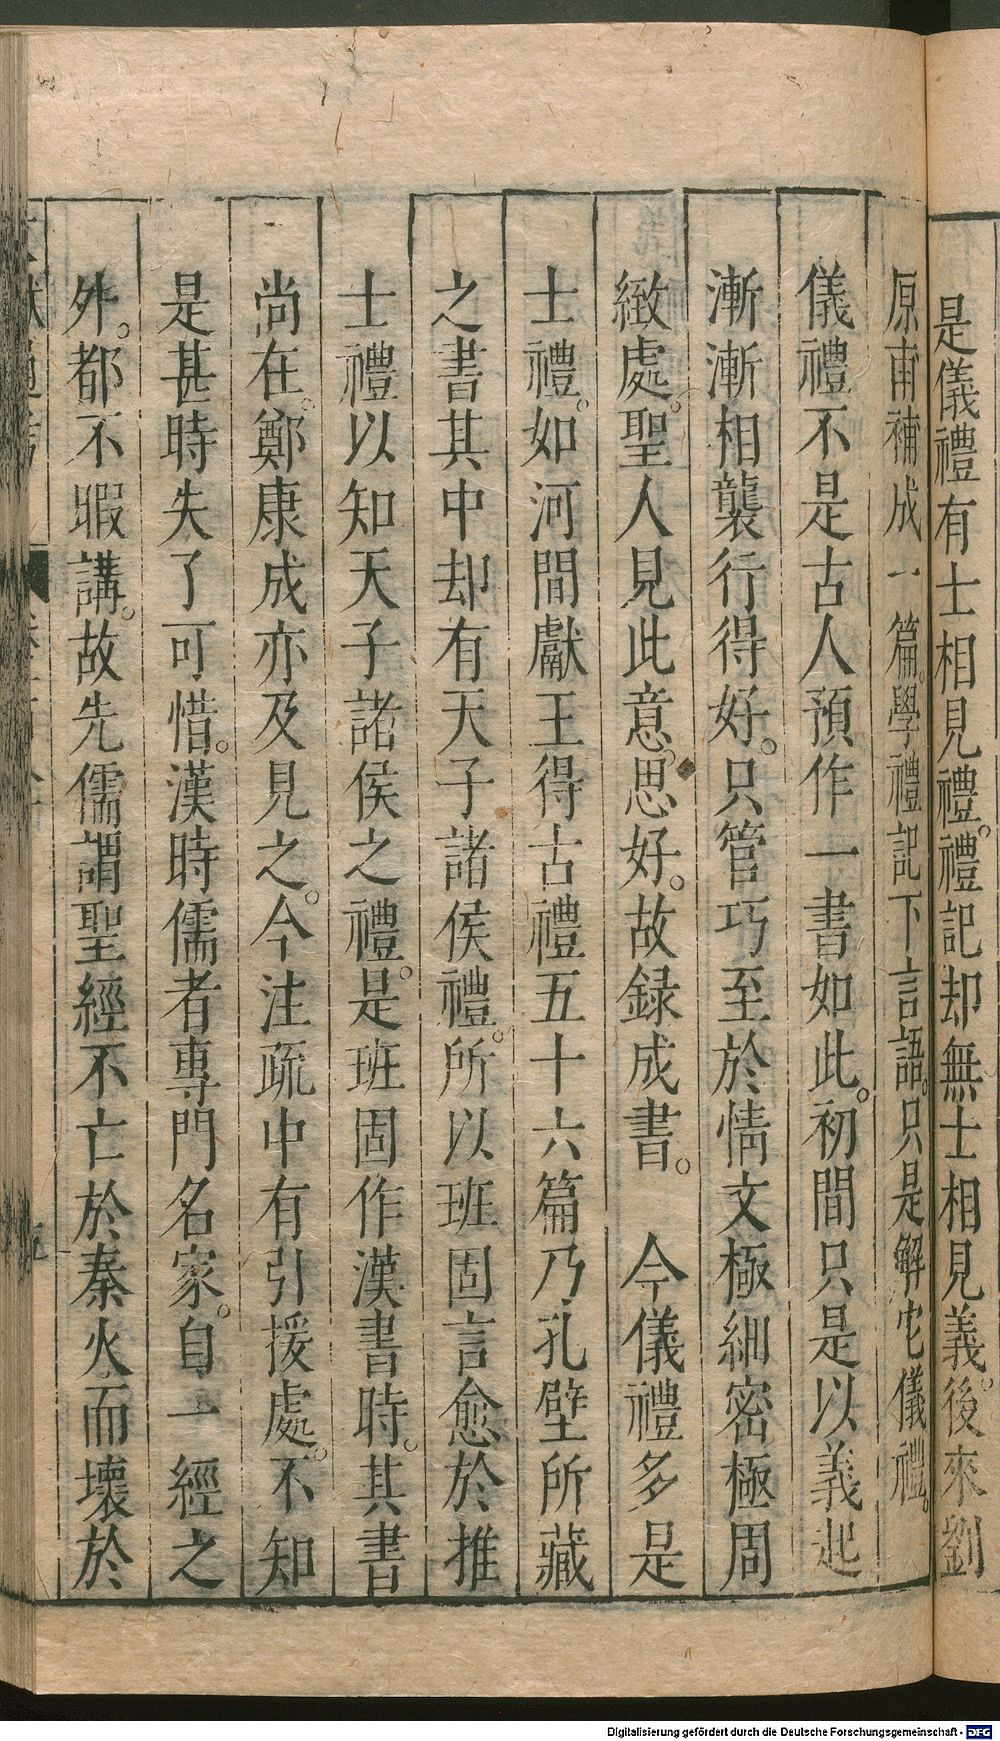 是儀禮有士相見禮。禮記却無士相見義。後來劉
原甫補成一篇。學禮記下言語。只是解它儀禮。
儀禮不是古人預作一書如此。初間只是以義起
漸漸相襲行得好。只管巧至於情文極細密極周
緻處。聖人見此意思好。故録成書。　今儀禮多是
士禮。如河間獻王得古禮五十六篇乃孔壁所藏
之書其中却有天子諸侯禮。所以班固言愈於推
士禮以知天子諸侯之禮。是班固作漢書時。其書
尚在。鄭康成亦及見之。今注疏中有引援處。不知
是甚時失了可惜。漢時儒者專門名家。自一經之
外。都不暇講。故先儒謂聖經不亡於秦火而壞於
Digitalisierung gefördert durch die Deutsche Forschungsgemeinschaft - DFG